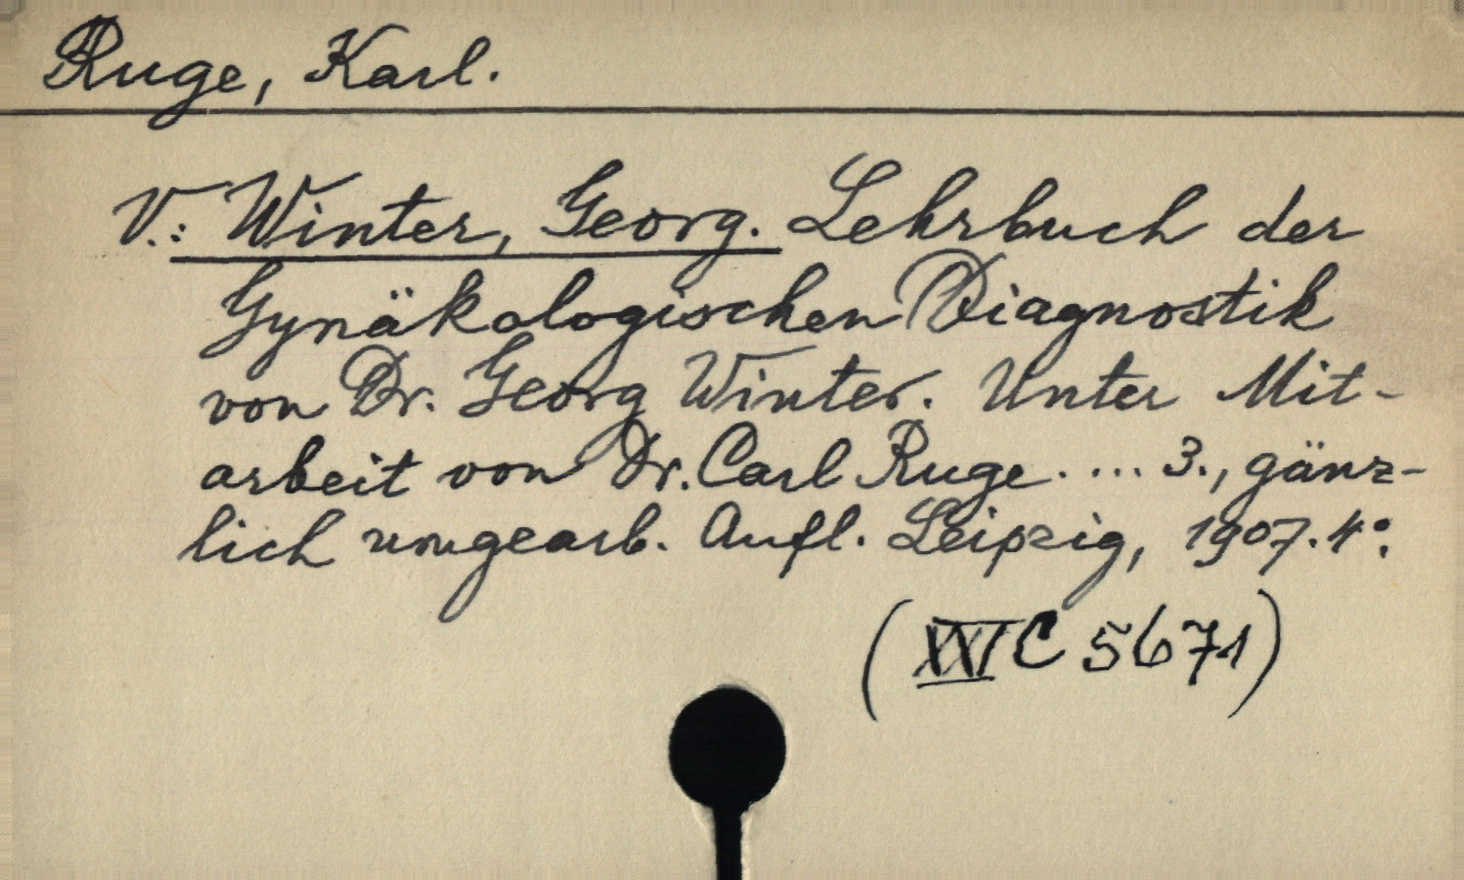 Ruge, Karl.
V.: Winter, Georg. Lehrbuch der
Gynäkologischen Diagnostik
von Dr. Georg Winter. Unter Mit-
arbeit von Dr. Carl Ruge. ... 3., gänz-
lich umgearb. Aufl. Leipzig, 1907. 4°.
(XXVI C 5671)